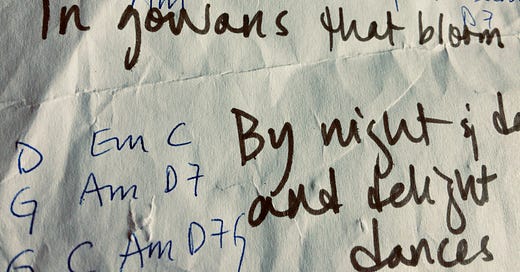 In gowans that bloom
D7
D Em C
By night &
G Am D7
and delight
G C Am D7 G
dances